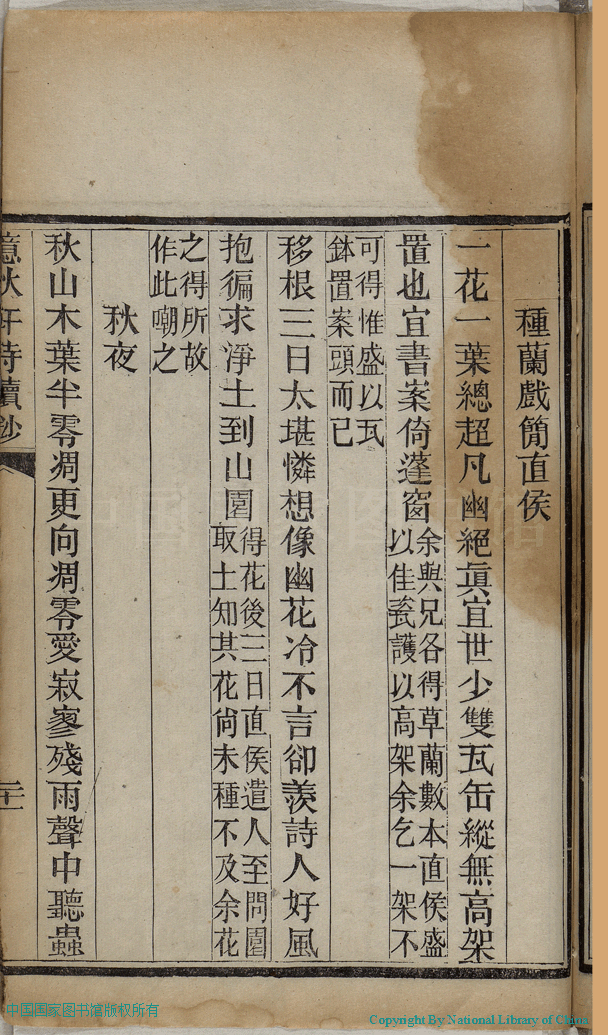 種蘭戲簡直侯
一花一葉總超凡幽絕眞宜世少雙瓦缶縱無高架
置也宜書案倚蓬窗余與兄各得草蘭數本直侯盛
以佳甆護以高架余乞一架不
可得惟盛以瓦
鉢置案頭而已
移根三日太堪憐想像幽花冷不言卻羨詩人好風
抱徧求淨土到山園得花後三日直侯遣人至問園
取土知其花尙未種不及余花
之得所故
作此嘲之
秋夜
秋山木葉半零凋更向凋零愛寂寥殘雨聲中聽蟲
憶秋軒詩續鈔
二十一
中国国家图书馆版权所有
Copyright By National Library of China